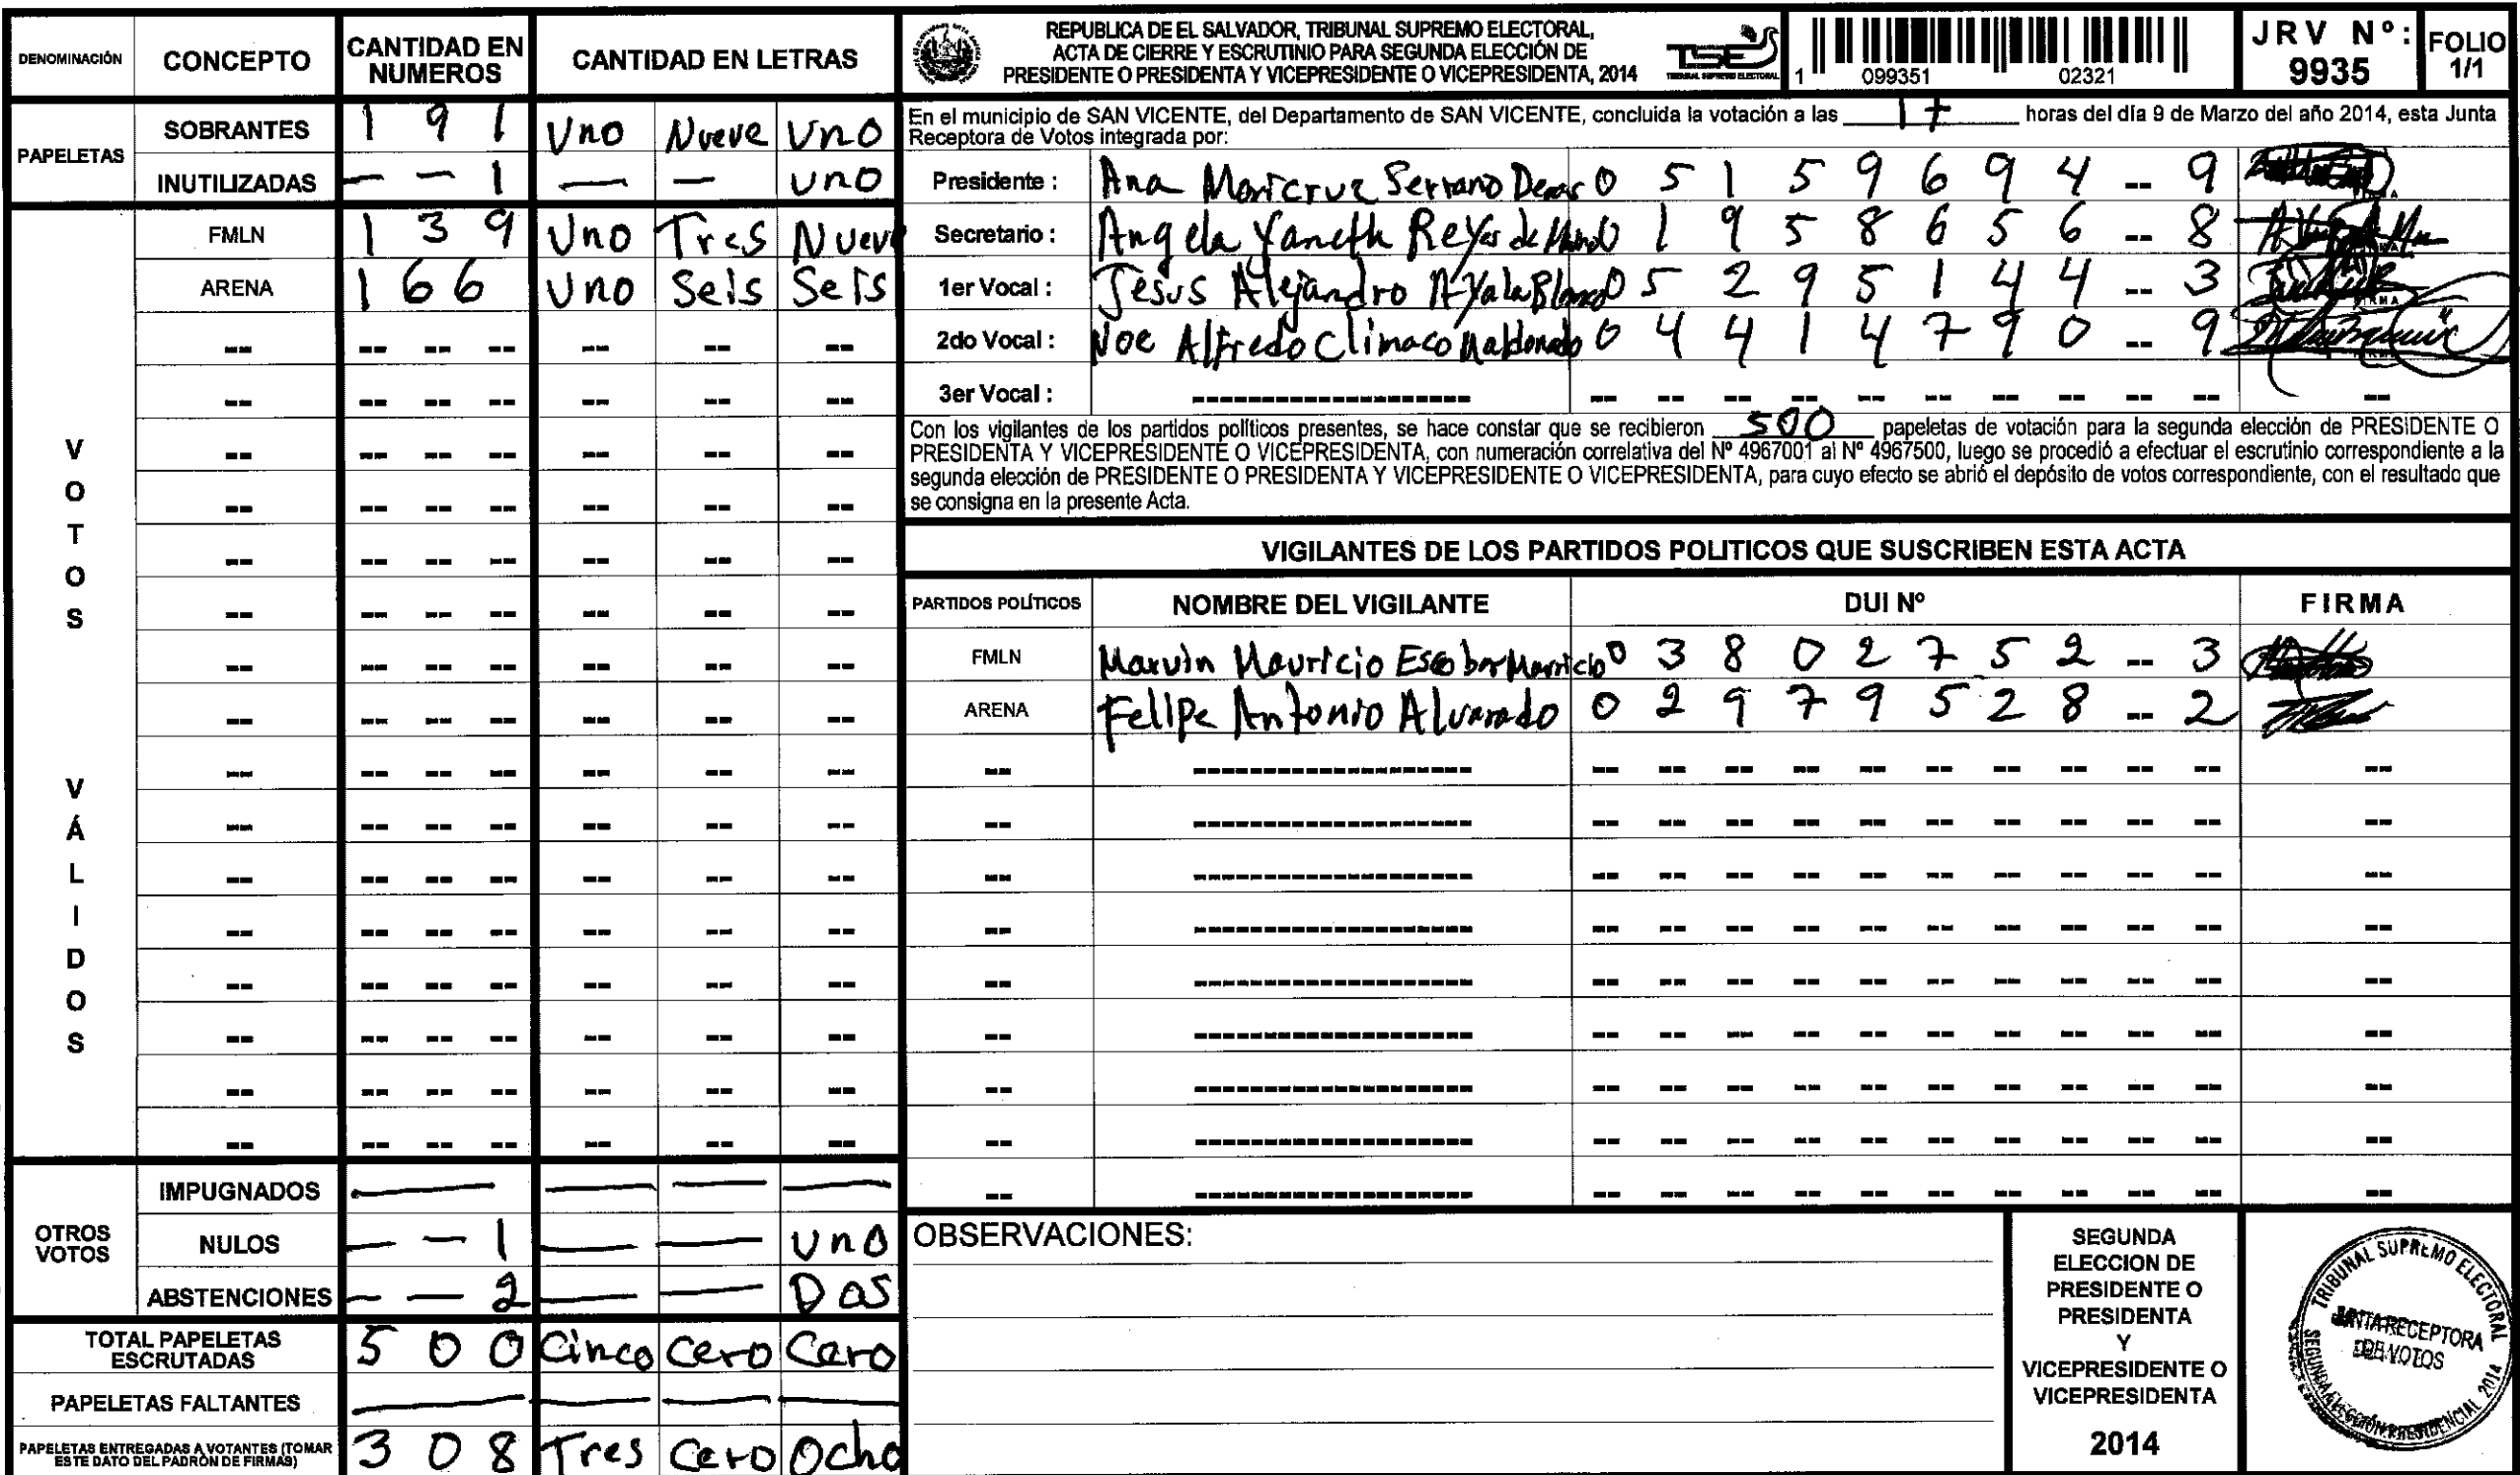 DENOMINACIÓN CONCEPTO CANTIDAD EN NUMEROS CANTIDAD EN LETRAS
PAPELETAS
SOBRANTES 1 9 1 Uno Nueve Uno
INUTILIZADAS — — 1 — — uno
VOTOS VÁLIDOS
FMLN 1 3 9 Uno Tres Nueve
ARENA 1 6 6 Uno Seis Seis
OTROS VOTOS
IMPUGNADOS — — — —
NULOS — — 1 — — uno
ABSTENCIONES — — 2 — — Dos
TOTAL PAPELETAS ESCRUTADAS 5 0 0 Cinco Cero Cero
PAPELETAS FALTANTES — — — —
PAPELETAS ENTREGADAS A VOTANTES (TOMAR ESTE DATO DEL PADRÓN DE FIRMAS) 3 0 8 Tres Cero Ocho
REPUBLICA DE EL SALVADOR, TRIBUNAL SUPREMO ELECTORAL,
ACTA DE CIERRE Y ESCRUTINIO PARA SEGUNDA ELECCIÓN DE
PRESIDENTE O PRESIDENTA Y VICEPRESIDENTE O VICEPRESIDENTA, 2014
TSE
TRIBUNAL SUPREMO ELECTORAL
1 099351 02321
JRV Nº: 9935
FOLIO 1/1
En el municipio de SAN VICENTE, del Departamento de SAN VICENTE, concluida la votación a las 17 horas del día 9 de Marzo del año 2014, esta Junta
Receptora de Votos integrada por:
Presidente : Ana Maricruz Serrano Deras 0 5 1 5 9 6 9 4 -- 9
Secretario : Angela Yaneth Reyes de 0 1 9 5 8 6 5 6 -- 8
1er Vocal : Jesus Alejandro Ayala Blanco 0 5 2 9 5 1 4 4 -- 3
2do Vocal : Noe Alfredo Climaco Maldonado 0 4 4 1 4 7 9 0 -- 9
3er Vocal :
Con los vigilantes de los partidos políticos presentes, se hace constar que se recibieron 500 papeletas de votación para la segunda elección de PRESIDENTE O
PRESIDENTA Y VICEPRESIDENTE O VICEPRESIDENTA, con numeración correlativa del Nº 4967001 al Nº 4967500, luego se procedió a efectuar el escrutinio correspondiente a la
segunda elección de PRESIDENTE O PRESIDENTA Y VICEPRESIDENTE O VICEPRESIDENTA, para cuyo efecto se abrió el depósito de votos correspondiente, con el resultado que
se consigna en la presente Acta.
VIGILANTES DE LOS PARTIDOS POLITICOS QUE SUSCRIBEN ESTA ACTA
PARTIDOS POLÍTICOS NOMBRE DEL VIGILANTE DUI Nº FIRMA
FMLN Marvin Mauricio Escobar Mauricio 0 3 8 0 2 7 5 2 -- 3
ARENA Felipe Antonio Alvarado 0 2 9 7 9 5 2 8 -- 2
OBSERVACIONES:
SEGUNDA
ELECCION DE
PRESIDENTE O
PRESIDENTA
Y
VICEPRESIDENTE O
VICEPRESIDENTA
2014
TRIBUNAL SUPREMO ELECTORAL
JUNTA RECEPTORA
DE VOTOS
SEGUNDA ELECCIÓN PRESIDENCIAL 2014